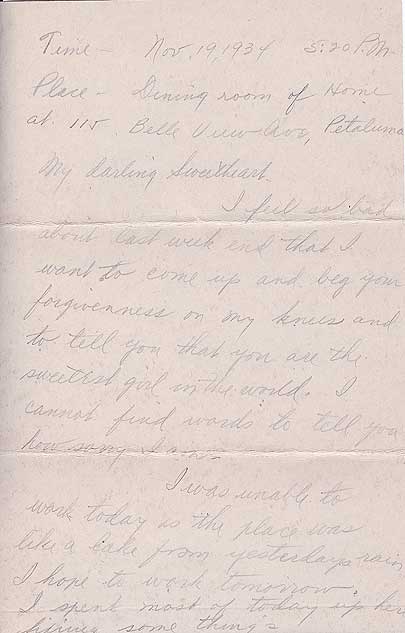 Time - Nov. 19, 1934 5:20 P.M.
Place - Dining room of Home
at 115 Belle View Ave, Petaluma
My darling Sweetheart
I feel so bad
about last week end that I
want to come up and beg your
forgivenness on my knees and
to tell you that you are the
sweetest girl in the world. I
cannot find words to tell you
how sorry I am.
I was unable to
work today as the place was
like a cake from yesterdays rain
I hope to work tomorrow.
I spent most of today up here
fixing some things